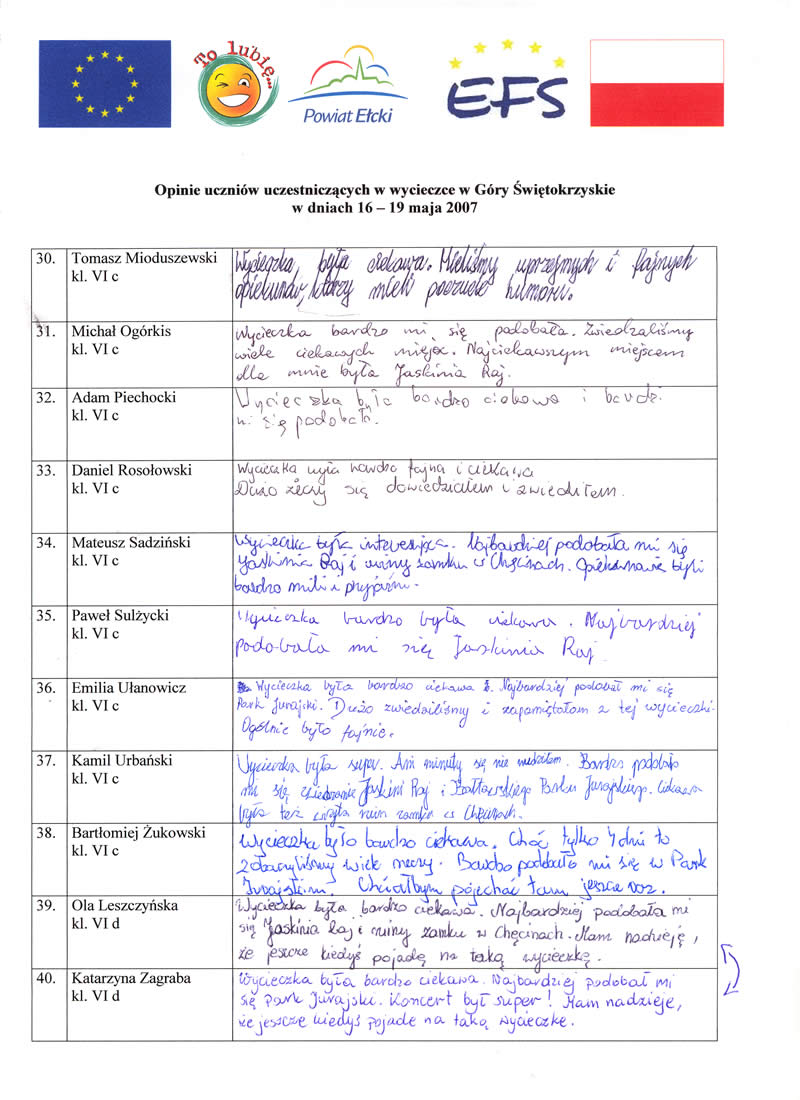 To lubię...
Powiat Ełcki
EFS
Opinie uczniów uczestniczących w wycieczce w Góry Świętokrzyskie
w dniach 16 – 19 maja 2007
30. Tomasz Mioduszewski
kl. VI c
Wycieczka, była ciekawa. Mieliśmy uprzejmych i fajnych
opiekunów, którzy mieli poczucie humoru.
31. Michał Ogórkis
kl. VI c
Wycieczka bardzo mi się podobała. Zwiedzaliśmy
wiele ciekawych miejsc. Najciekawszym miejscem
dla mnie była Jaskinia Raj.
32. Adam Piechocki
kl. VI c
Wycieczka była bardzo ciekawa i
mi się podobała.
33. Daniel Rosołowski
kl. VI c
Wycieczka była bardzo fajna i ciekawa
Dużo żeczy się dowiedziałem i zwiedziłem.
34. Mateusz Sadziński
kl. VI c
Wycieczka była interesująca. Najbardziej podobała mi się
Jaskinia Raj i ruiny zamku w Chęcinach. Opiekunowie byli
bardzo mili i przyjaźni.
35. Paweł Sulżycki
kl. VI c
Wycieczka bardzo była ciekawa. Najbardziej
podobała mi się Jaskinia Raj.
36. Emilia Ułanowicz
kl. VI c
Wycieczka była bardzo ciekawa. Najbardziej podobał mi się
Park Jurajski. Dużo zwiedziliśmy i zapamiętałam z tej wycieczki.
Ogólnie było fajnie.
37. Kamil Urbański
kl. VI c
Wycieczka była super. Ani minuty się nie nudziłem. Bardzo podobało
mi się zwiedzanie Jaskini Raj i Bałtowskiego Parku Jurajskiego. Ciekawa
była też wizyta ruin zamku w Chęcinach.
38. Bartłomiej Żukowski
kl. VI c
Wycieczka było bardzo ciekawa. Choć tylko 4 dni to
zobaczyliśmy wiele rzeczy. Bardzo podobało mi się w Park
Jurajskim. Chciałbym pojechać tam jeszcze raz.
39. Ola Leszczyńska
kl. VI d
Wycieczka była bardzo ciekawa. Najbardziej podobała mi
się Jaskinia Raj i ruiny zamku w Chęcinach. Mam nadzieję,
że jeszcze kiedyś pojadę na taką wycieczkę.
40. Katarzyna Zagraba
kl. VI d
Wycieczka była bardzo ciekawa. Najbardziej podobał mi
się Park Jurajski. Koncert był super! Mam nadzieje,
że jeszcze kiedyś pojade na taką wycieczke.